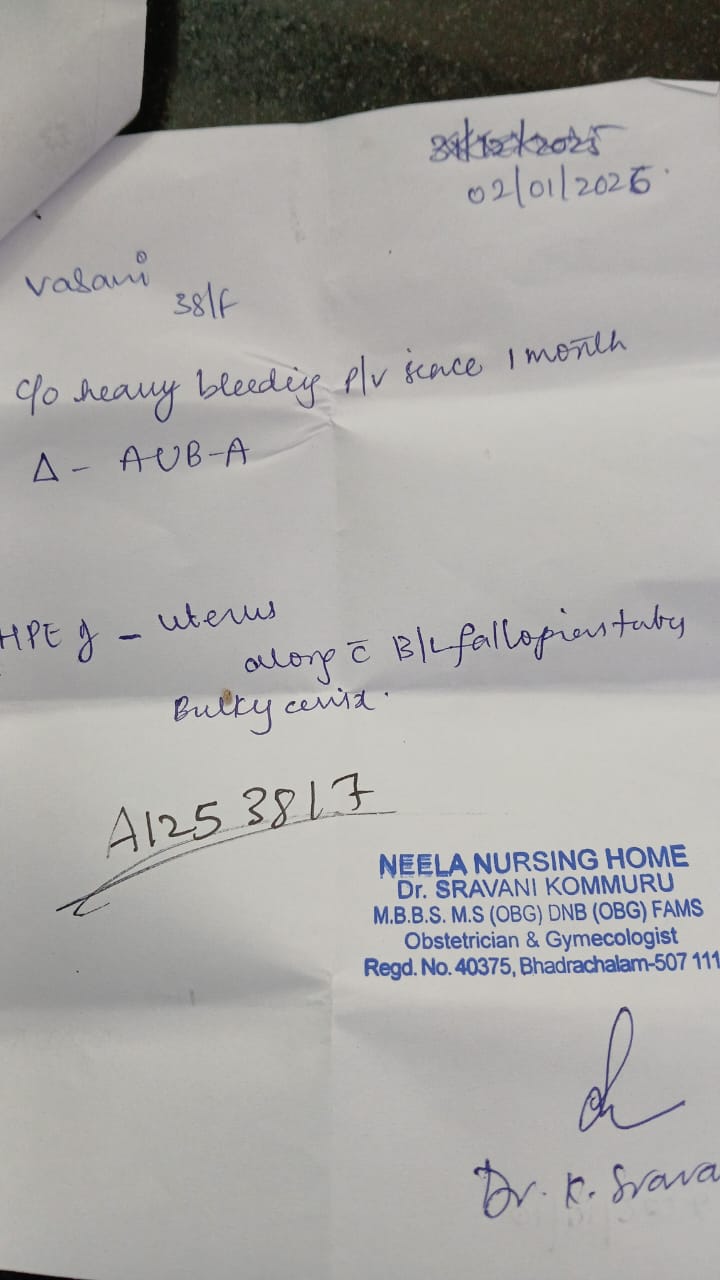 31/12/2025
02/01/2026
Vasani
38/F
c/o heavy bleeding p/v scence 1 month
Δ - AUB-A
HPE of - uterus
along c̄ B/L fallopian tubes
Bulky cervix.
A1253817
NEELA NURSING HOME
Dr. SRAVANI KOMMURU
M.B.B.S. M.S (OBG) DNB (OBG) FAMS
Obstetrician & Gymecologist
Regd. No. 40375, Bhadrachalam-507 111
Dr. K. Srava